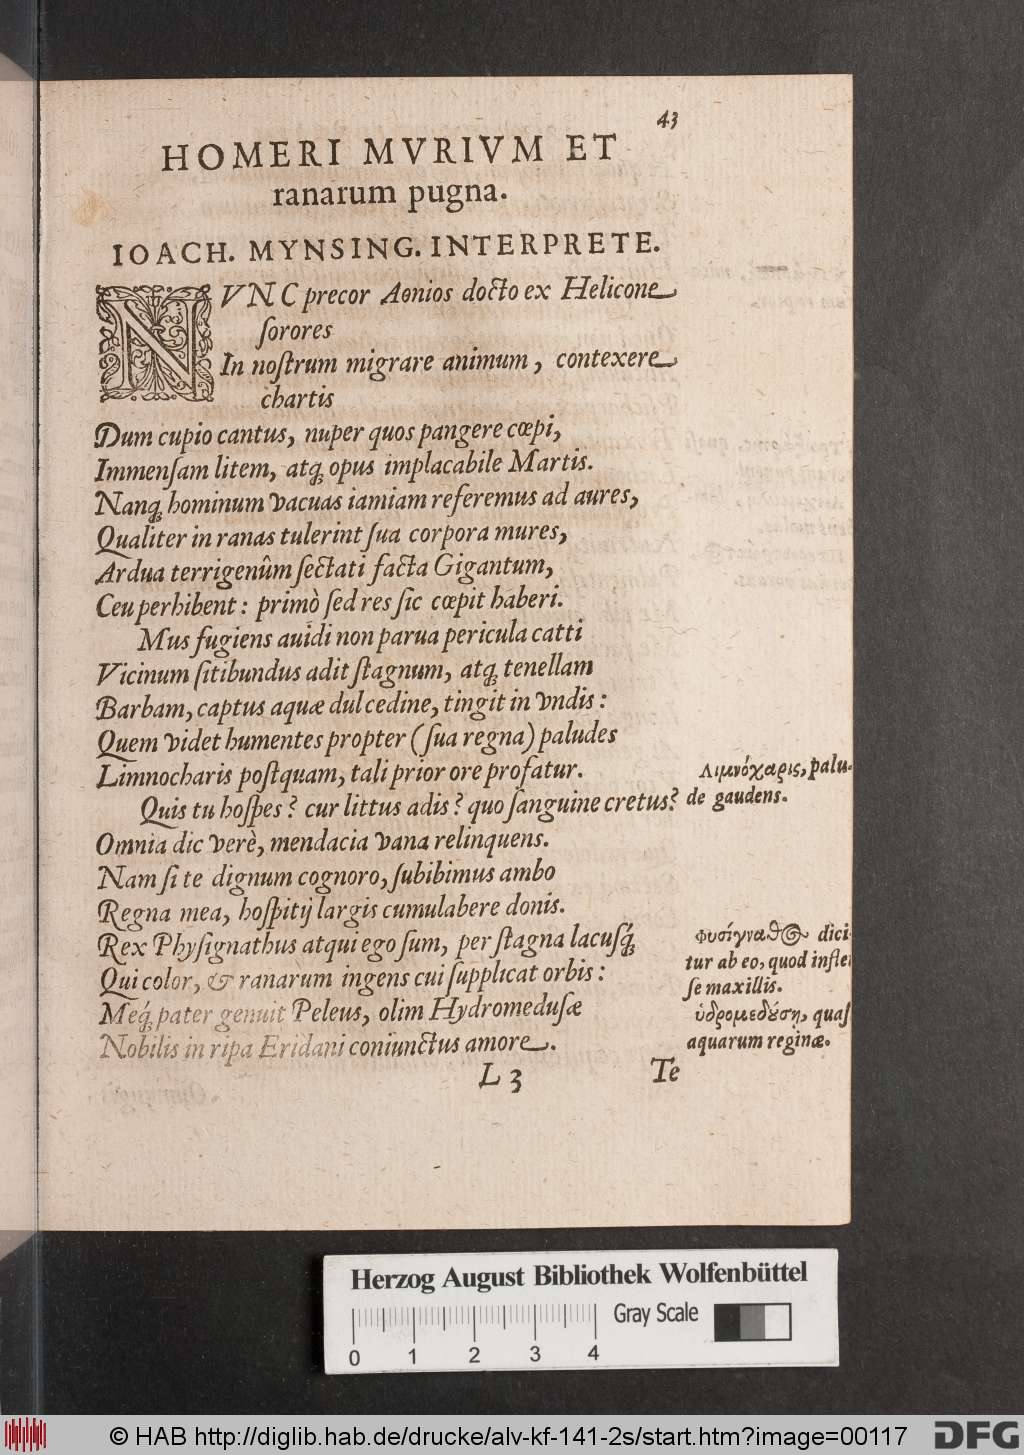 43
HOMERI MVRIVM ET
ranarum pugna.
IOACH. MYNSING. INTERPRETE.
NVNC precor Aonios docto ex Helicone
ſorores
In noſtrum migrare animum, contexere
chartis
Dum cupio cantus, nuper quos pangere cœpi,
Immenſam litem, atq́ꝫ opus implacabile Martis.
Nanq́ꝫ hominum vacuas iamiam referemus ad aures,
Qualiter in ranas tulerint ſua corpora mures,
Ardua terrigenûm ſectati facta Gigantum,
Ceu perhibent: primò ſed res ſic cœpit haberi.
Mus fugiens auidi non parua pericula catti
Vicinum ſitibundus adit ſtagnum, atq́ꝫ tenellam
Barbam, captus aquæ dulcedine, tingit in vndis:
Quem videt humentes propter (ſua regna) paludes
Limnocharis poſtquam, tali prior ore profatur.
Λιμνόχαρις, palu-
de gaudens.
Quis tu hoſpes? cur littus adis? quo ſanguine cretus?
Omnia dic verè, mendacia vana relinquens.
Nam ſi te dignum cognoro, ſubibimus ambo
Regna mea, hoſpitij largis cumulabere donis.
Rex Phyſignathus atqui ego ſum, per ſtagna lacuſq́ꝫ
Qui color, & ranarum ingens cui ſupplicat orbis:
Meq́ꝫ pater genuit Peleus, olim Hydromeduſæ
Nobilis in ripa Eridani coniunctus amore.
φυσίγναθος dici
tur ab eo, quod inflet
ſe maxillis.
ὑδρομεδούση, quaſ
aquarum reginæ.
L 3
Te
Herzog August Bibliothek Wolfenbüttel
Gray Scale
0 1 2 3 4
© HAB http://diglib.hab.de/drucke/alv-kf-141-2s/start.htm?image=00117
DFG